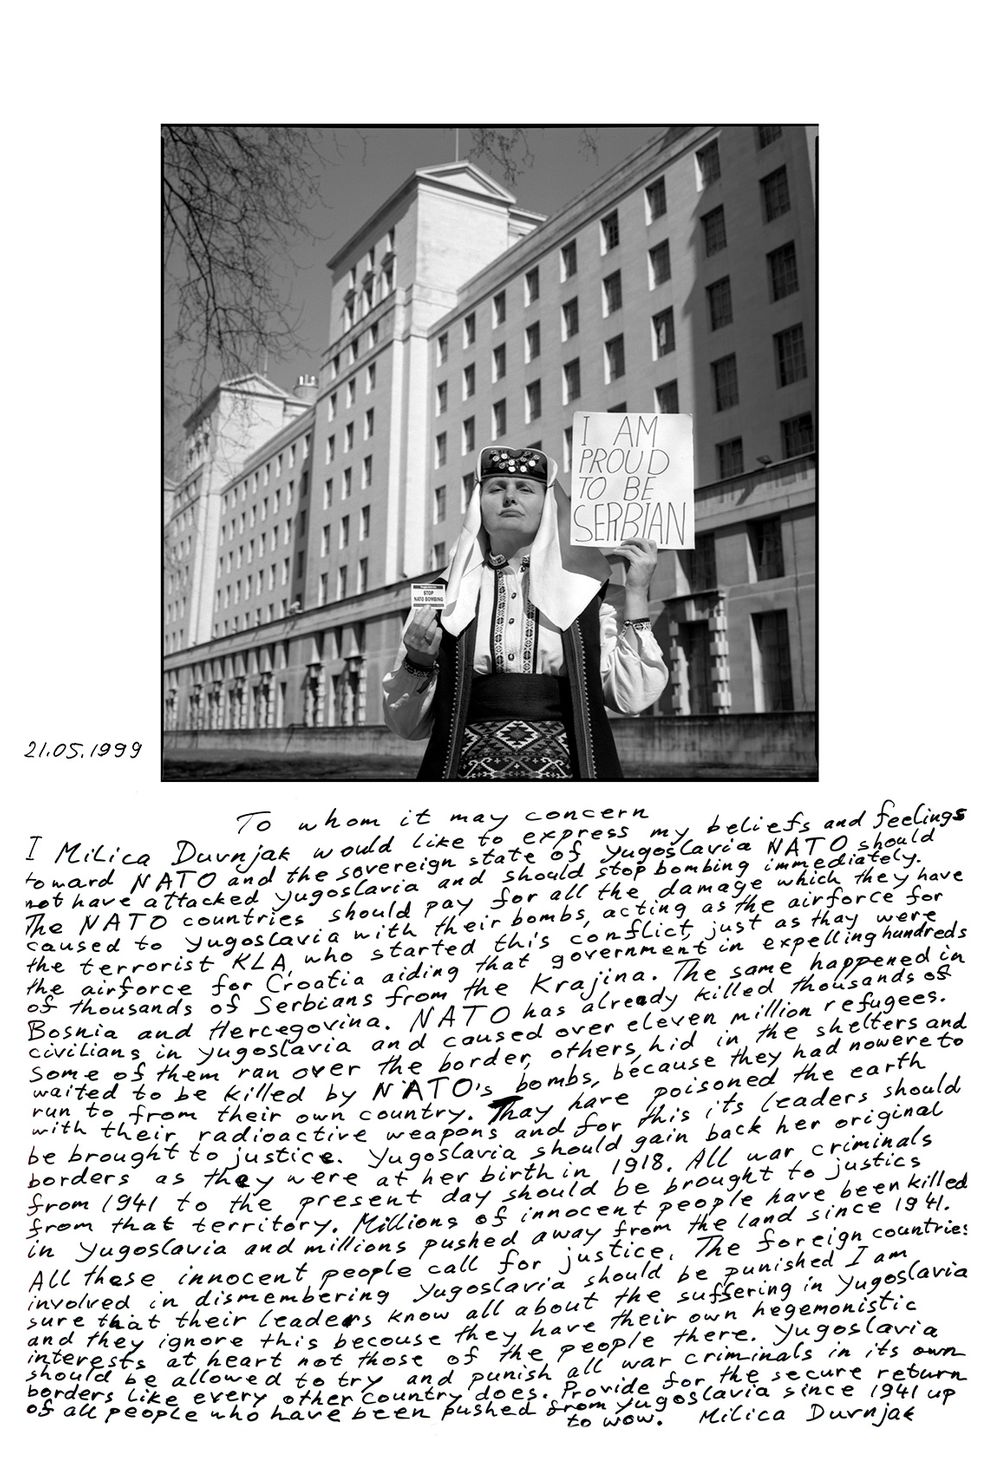 I AM
PROUD
TO BE
SERBIAN
STOP
NATO BOMBING
21.05.1999
To whom it may concern
I Milica Duvnjak would like to express my beliefs and feelings
toward NATO and the sovereign state of Yugoslavia NATO should
not have attacked Yugoslavia and should stop bombing immediately.
The NATO countries should pay for all the damage which they have
caused to Yugoslavia with their bombs, acting as the airforce for
the terrorist KLA, who started this conflict, just as thay were
the airforce for Croatia aiding that government in expelling hundreds
of thousands of Serbians from the Krajina. The same happened in
Bosnia and Hercegovina. NATO has already killed thousands of
civilians in Yugoslavia and caused over eleven million refugees.
Some of them ran over the border, others, hid in the shelters and
waited to be killed by NATO's bombs, because they had nowere to
run to from their own country. Thay have poisoned the earth
with their radioactive weapons and for this its leaders should
be brought to justice. Yugoslavia should gain back her original
borders as they were at her birth in 1918. All war criminals
from 1941 to the present day should be brought to justics
from that territory. Millions of innocent people have been killed
in Yugoslavia and millions pushed away from the land since 1941.
All these innocent people call for justice. The foreign countries
involved in dismembering Yugoslavia should be punished I am
sure that their leaders know all about the suffering in Yugoslavia
and they ignore this becouse they have their own hegemonistic
interests at heart not those of the people there. Yugoslavia
should be allowed to try and punish all war criminals in its own
borders like every other country does. Provide for the secure return
of all people who have been pushed from Yugoslavia since 1941 up
to wow. Milica Duvnjak